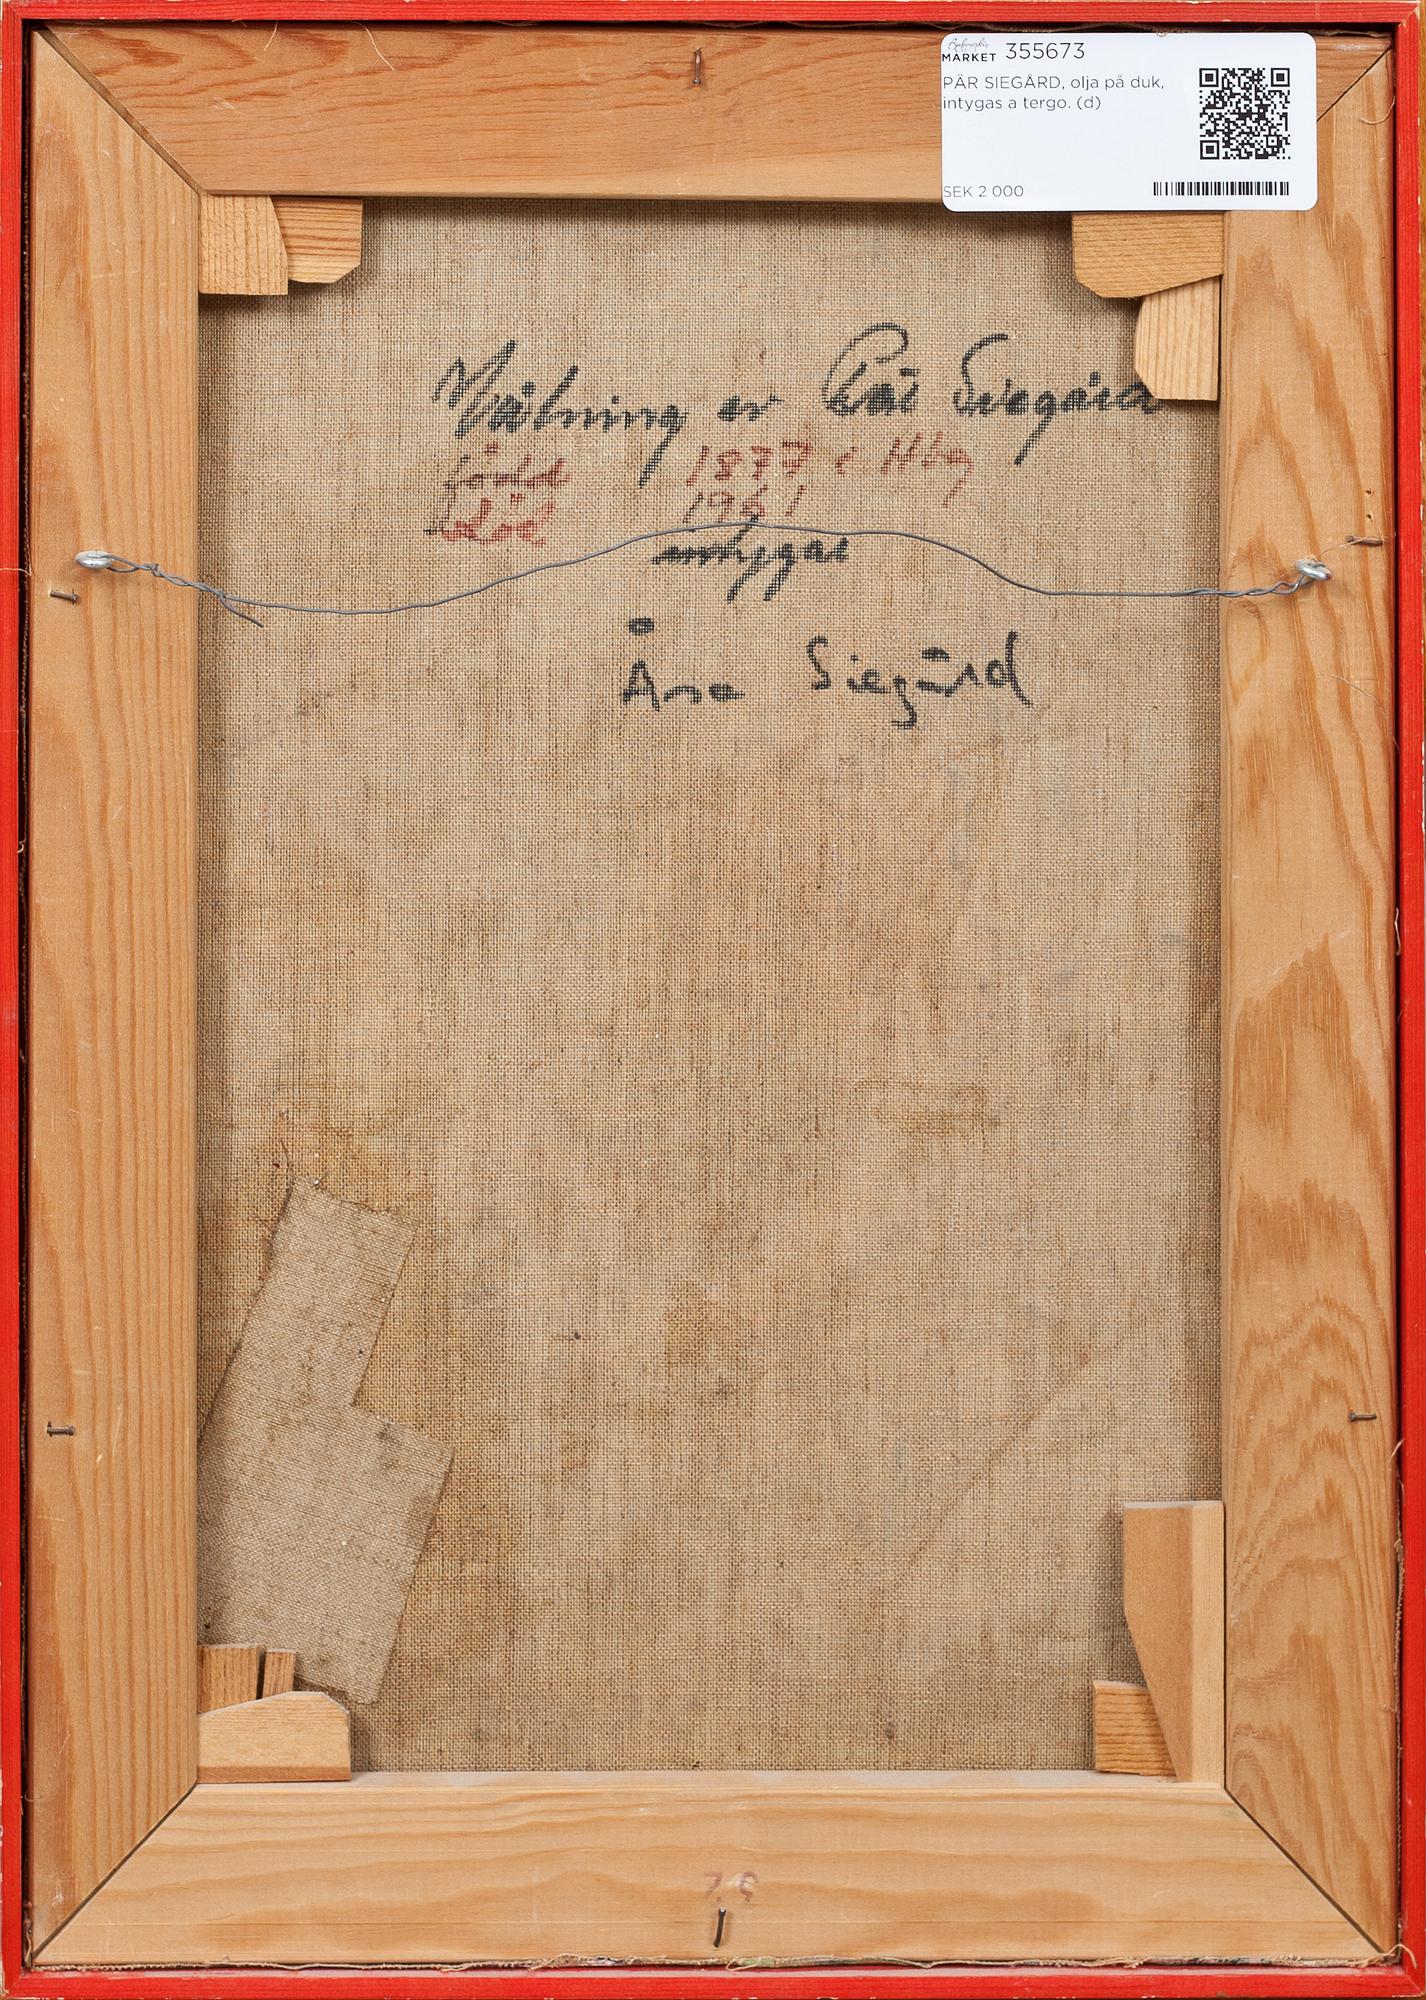 Bukowskis
MARKET 355673
PÄR SIEGÅRD, olja på duk,
intygas a tergo. (d)
SEK 2 000
Målning av Pär Siegård
född 1877 i Hbg
död 1961
intygas
Åsa Siegård